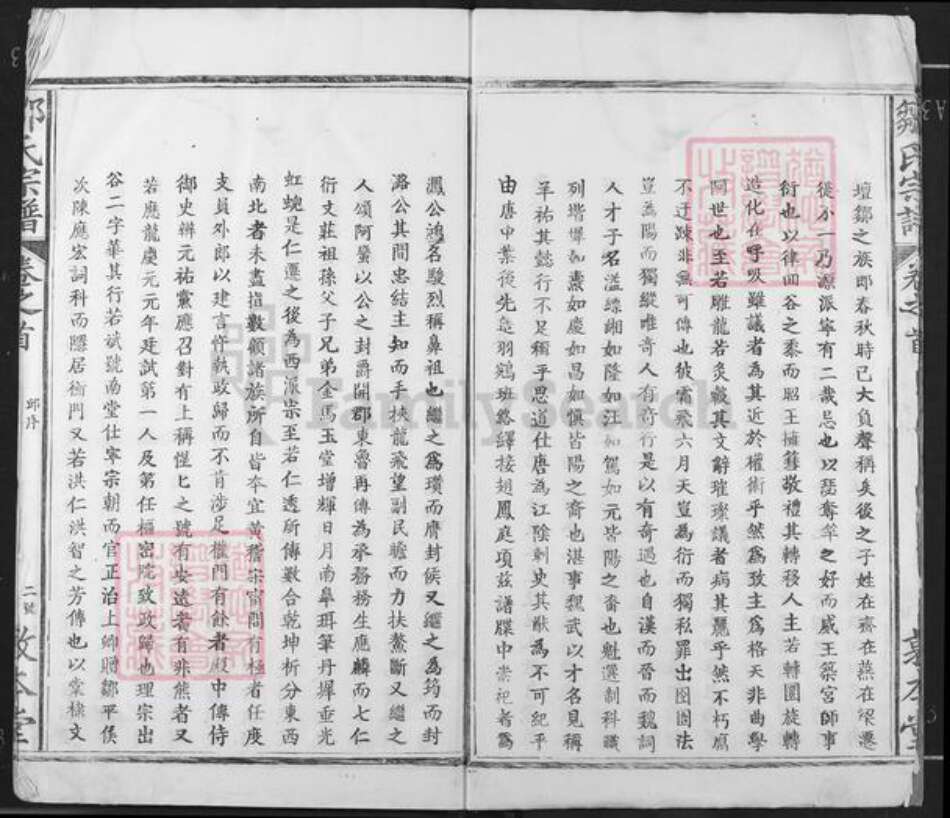 鄒氏宗譜
卷之首
敦本堂
壇鄒之族郎春秋時已大負聲稱矣後之子姓在齊在燕在梁遷
從不一乃源派寧有二哉忌也以琴奪竽之好而威王築宮師事
衍也以律回谷之黍而昭王擁篲敬禮其轉移人主若轉圜旋轉
造化在呼吸雖議者為其近於權術乎然為致主為格天非曲學
同世也至若雕龍若炙轂其文辭璀璨議者病其麗乎然不朽腐
不迂疎非無可傳也彼霜飛六月天豈為衍而獨私罪出囹圄法
豈為陽而獨縱唯奇人有奇行是以有奇遇也自漢而晉而魏詞
人才子名溢縹緗如隆如汪如駕如元皆陽之裔也魁選制科職
列堦墀如燾如慶如昌如慎皆陽之裔也湛事魏武以才名見稱
羊祐其懿行不足稱乎思道仕唐為江陰刺史其猷為不可紀乎
由唐中葉後先造羽鵷班絡繹接翅鳳庭項茲譜牒中崇祀者為
鳳公鴻名駿烈稱鼻祖也繼之為瓚而膺封侯又繼之為筠而封
潞公其間忠結主知而手挾龍飛望副民瞻而力扶鰲斷又繼之
人頌阿蠻以公之封爵開郡東魯再傳為承務務生應麟而七仁
衍文莊祖孫父子兄弟金馬玉堂增輝日月南皐珥筆丹墀垂光
虹蜺是仁遷之後為西派宗至若仁透所傳數合乾坤析分東西
南北者未盡指數領諸族所自皆夲宜黃稽宗官問有極者任度
支員外郎以建言忤執政歸而不肯涉足權門有餘者殿中傳侍
御史辨元祐黨應召對有上稱惺匕之號有安遠者有非熊者又
若應龍慶元元年廷試第一人及第任樞密院致政歸也理宗出
谷二字華其行若斌號南堂仕寧宗朝而官正治上卿贈鄒平侯
次陳應宏詞科而隱居衡門又若洪仁洪智之芳傳也以棠棣文
鄒氏宗譜
卷之首
邱序
二號
敦本堂